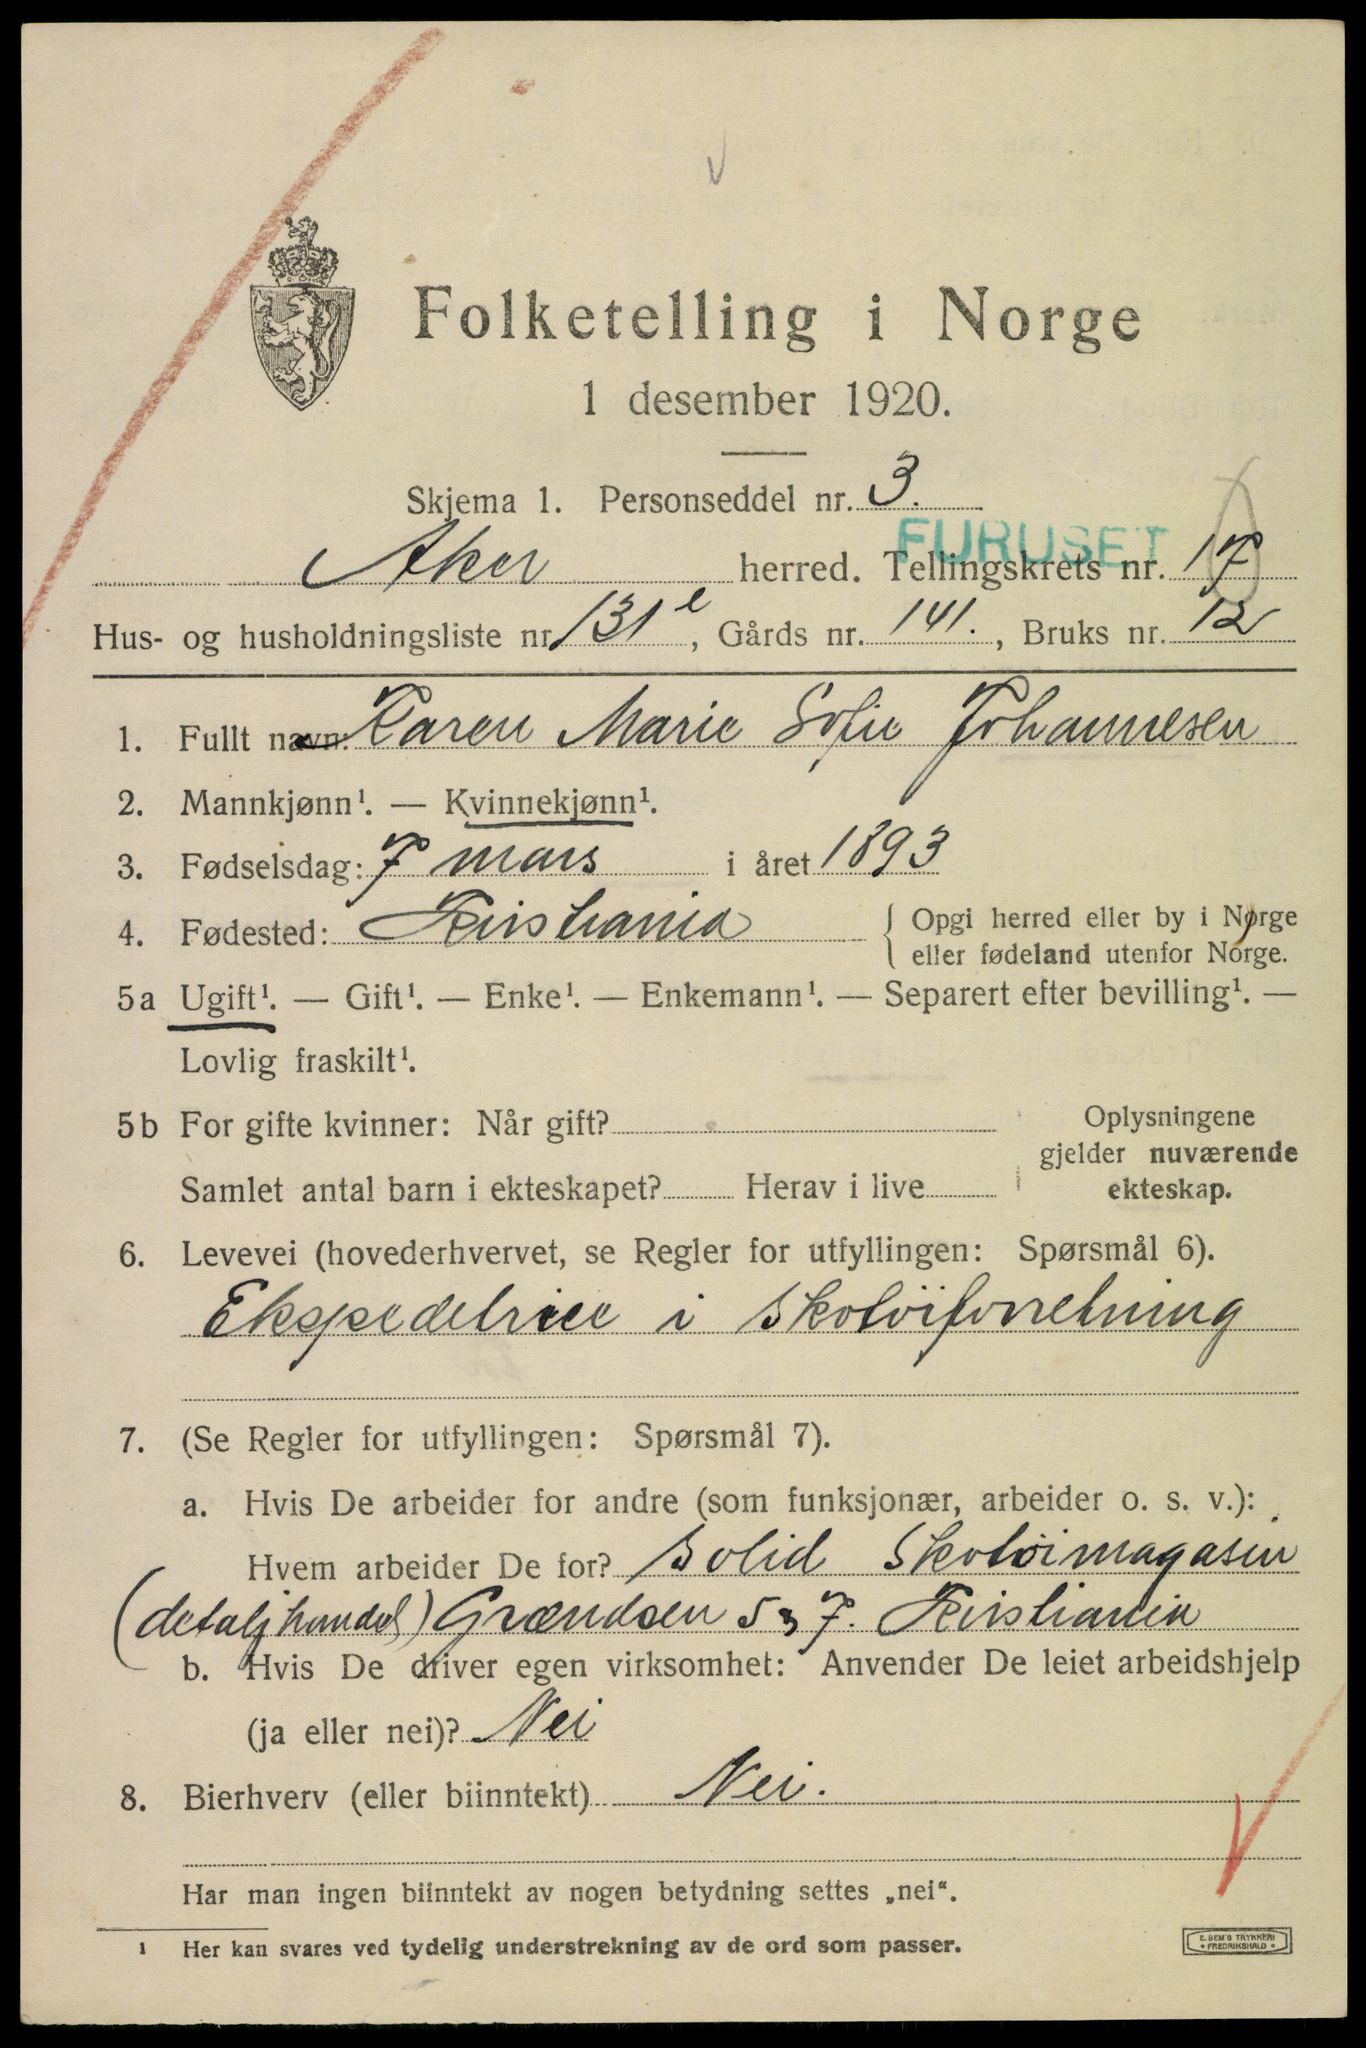 Folketelling i Norge
1 desember 1920.
Skjema 1. Personseddel nr. 3.
FURUSET
Aker herred. Tellingskrets nr. 17
Hus- og husholdningsliste nr. 131 e, Gårds nr. 141., Bruks nr. 12
1. Fullt navn: Karen Marie Sofie Johannesen
2. Mannkjønn¹. — Kvinnekjønn¹.
3. Fødselsdag: 7 mars i året 1893
4. Fødested: Kristiania { Opgi herred eller by i Norge
eller fødeland utenfor Norge.
5a Ugift¹. — Gift¹. — Enke¹. — Enkemann¹. — Separert efter bevilling¹. —
Lovlig fraskilt¹.
5b For gifte kvinner: Når gift?
Samlet antal barn i ekteskapet? Herav i live
Oplysningene
gjelder nuværende
ekteskap.
6. Levevei (hovederhvervet, se Regler for utfyllingen: Spørsmål 6).
Ekspedetrice i Skotöiforretning
7. (Se Regler for utfyllingen: Spørsmål 7).
a. Hvis De arbeider for andre (som funksjonær, arbeider o. s. v.):
Hvem arbeider De for? Solid Skotöimagasin
(detaljhandel) Grændsen 5 7. Kristiania
b. Hvis De driver egen virksomhet: Anvender De leiet arbeidshjelp
(ja eller nei)? Nei
8. Bierhverv (eller biinntekt) Nei.
Har man ingen biinntekt av nogen betydning settes „nei“.
¹ Her kan svares ved tydelig understrekning av de ord som passer.
E. SEM'S TRYKKERI
* FREDRIKSHALD *